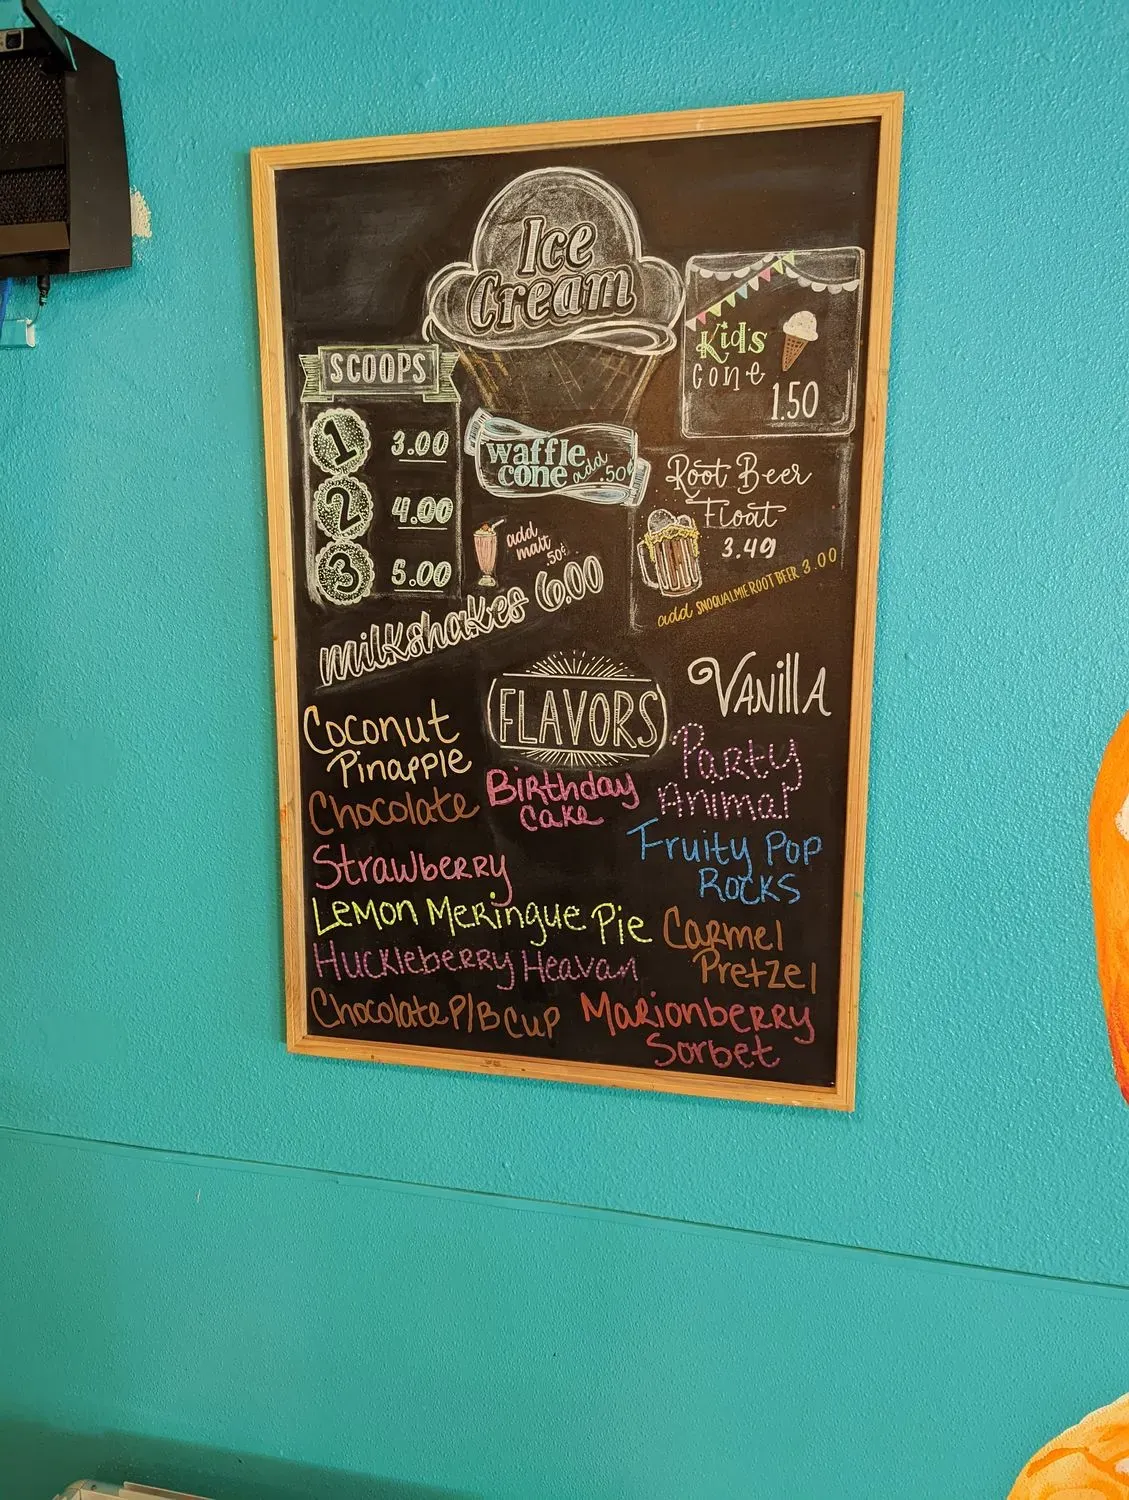 Ice
Cream
SCOOPS
1 3.00
2 4.00
3 5.00
waffle
cone add .50¢
Kid's
cone
1.50
Root Beer
Float
3.49
add SNOQUALMIE ROOT BEER 3.00
add
malt
.50¢
milkshakes 6.00
FLAVORS
Vanilla
Coconut
Pinapple
Chocolate
Birthday
Cake
Party
Animal
Strawberry
Fruity Pop
Rocks
Lemon Meringue Pie
Carmel
Pretzel
Huckleberry Heavan
Chocolate P/B Cup
Marionberry
Sorbet